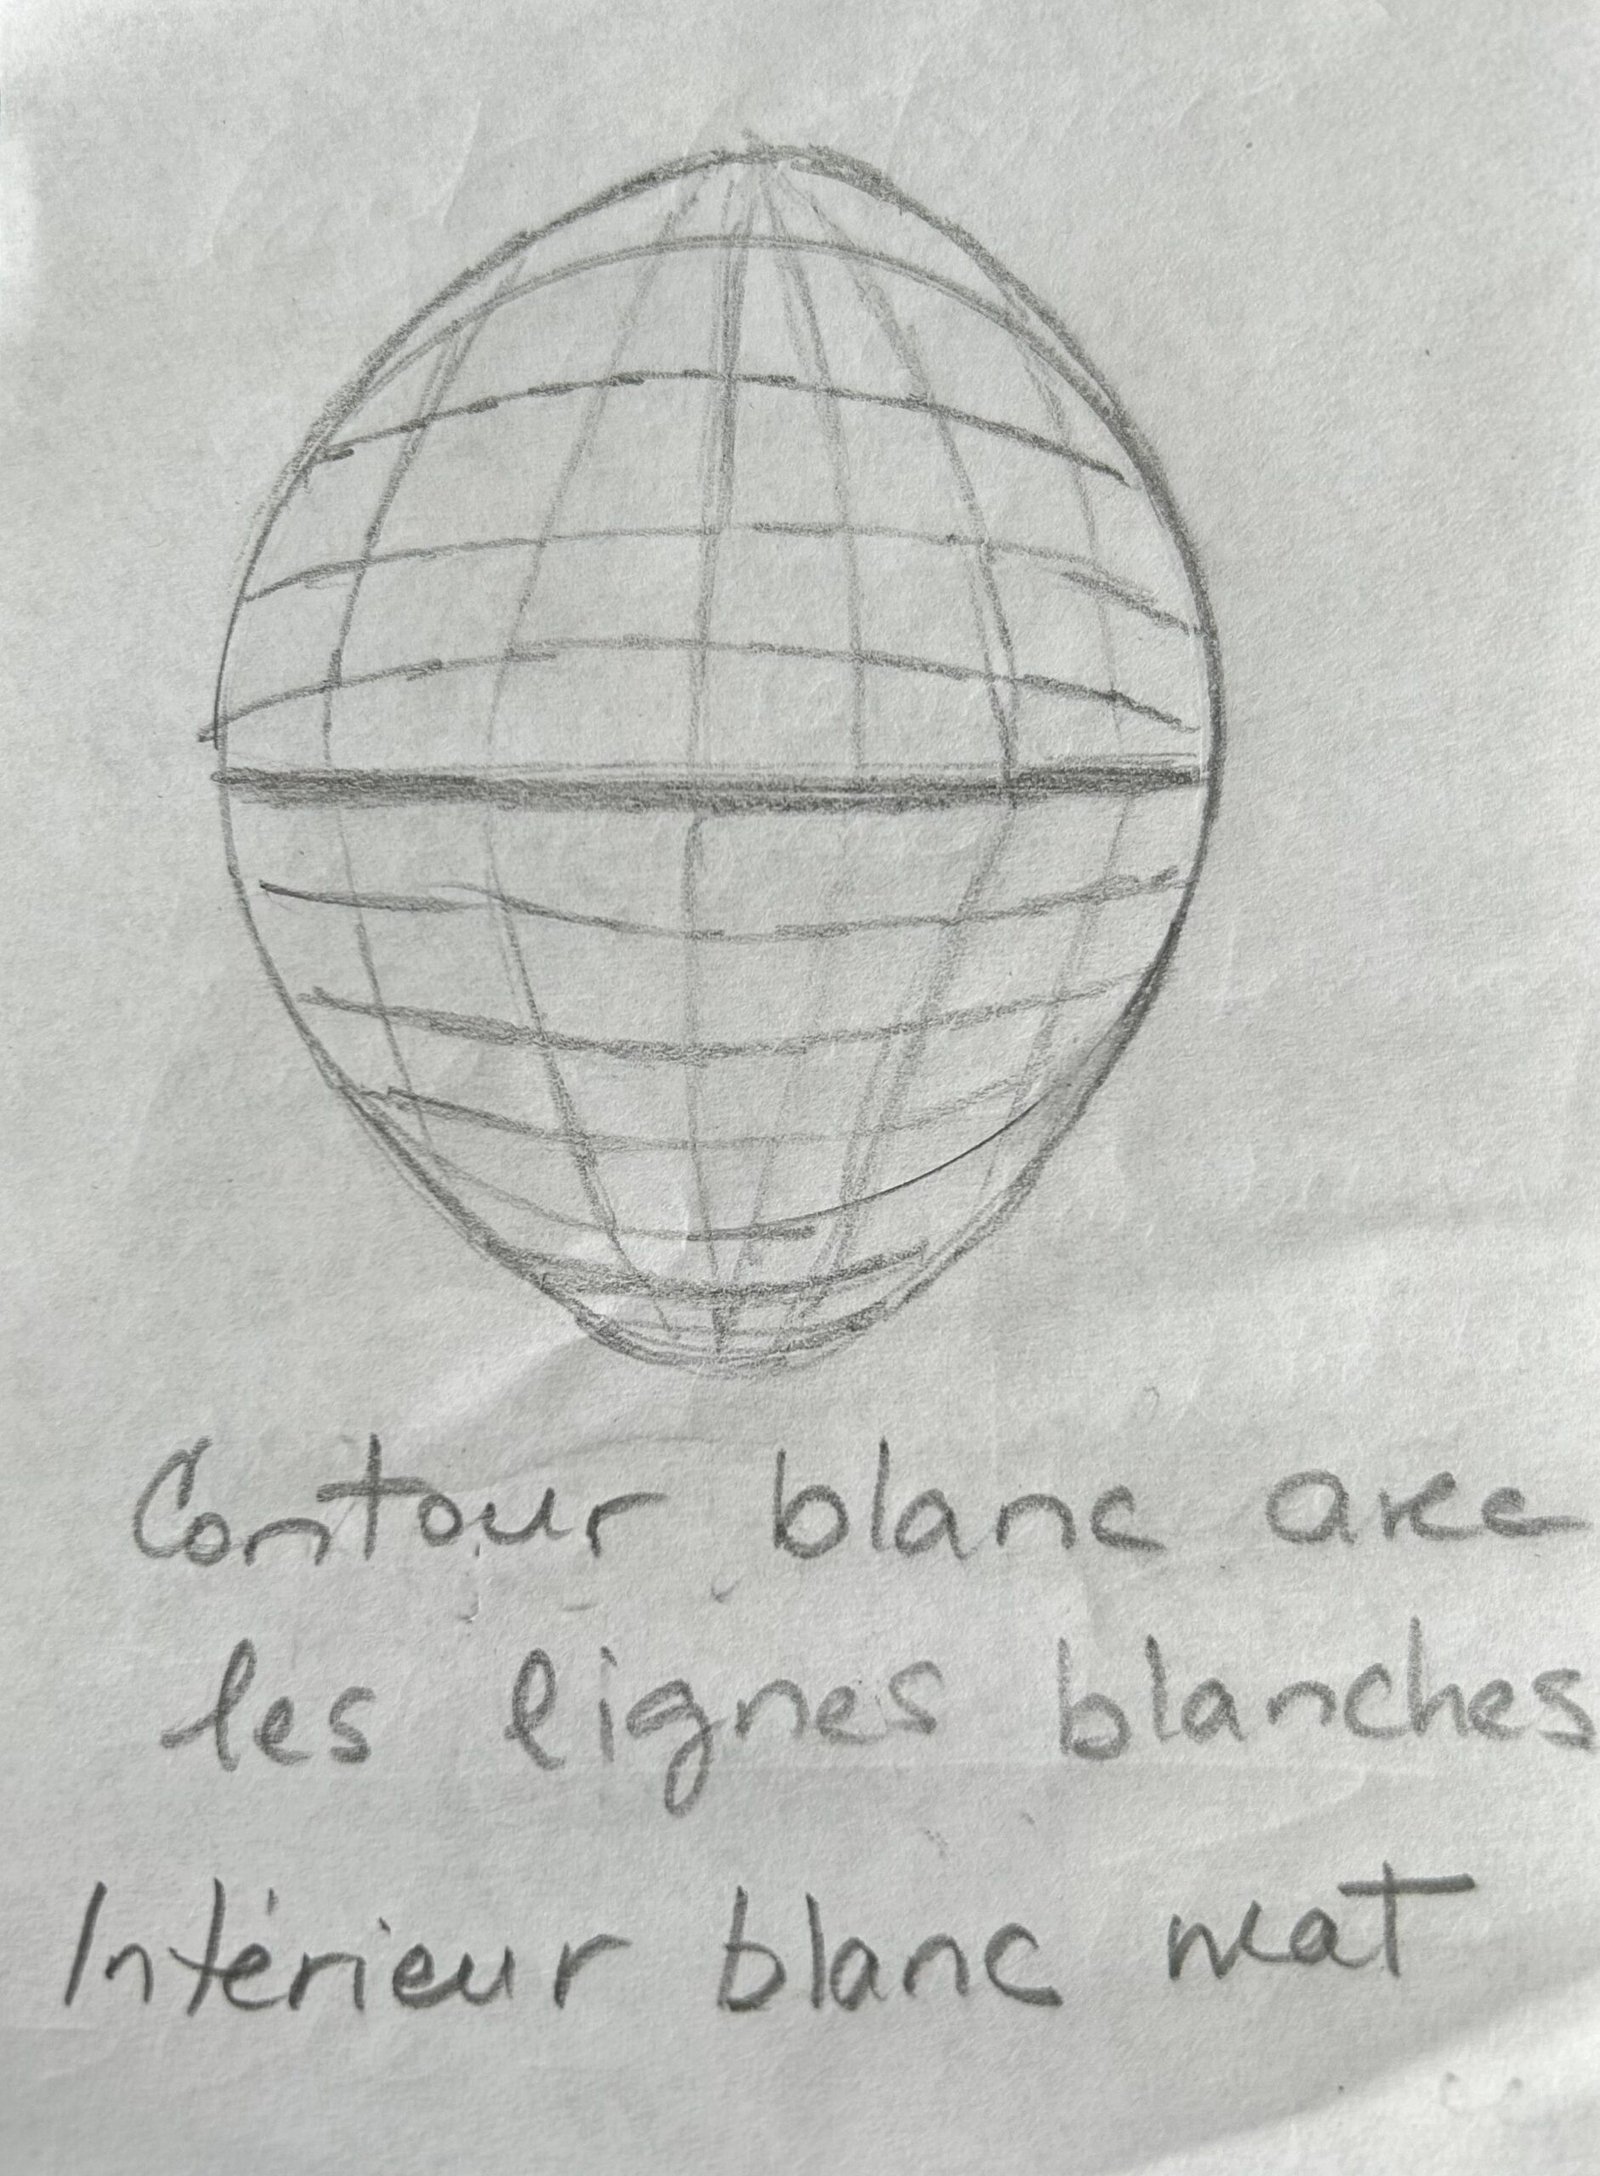 Contour blanc avec
les lignes blanches
Intérieur blanc mat